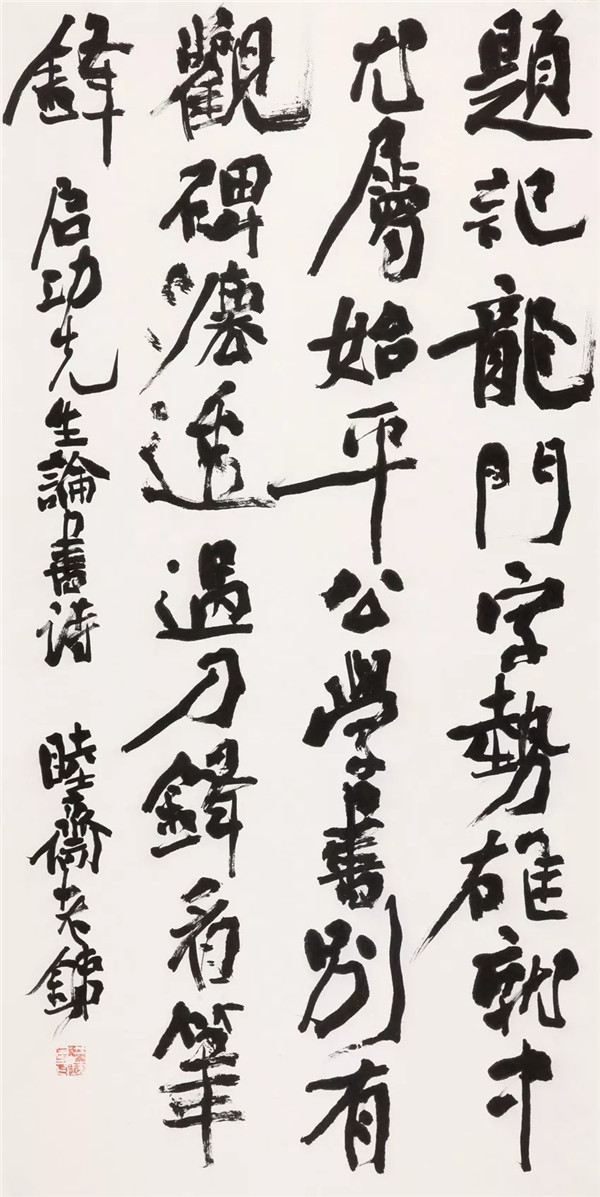 題記龍門字勢雄就中
尤屬始平公學書別有
觀碑灋透過刀鋒看筆
鋒 启功先生論書詩 睦齋老